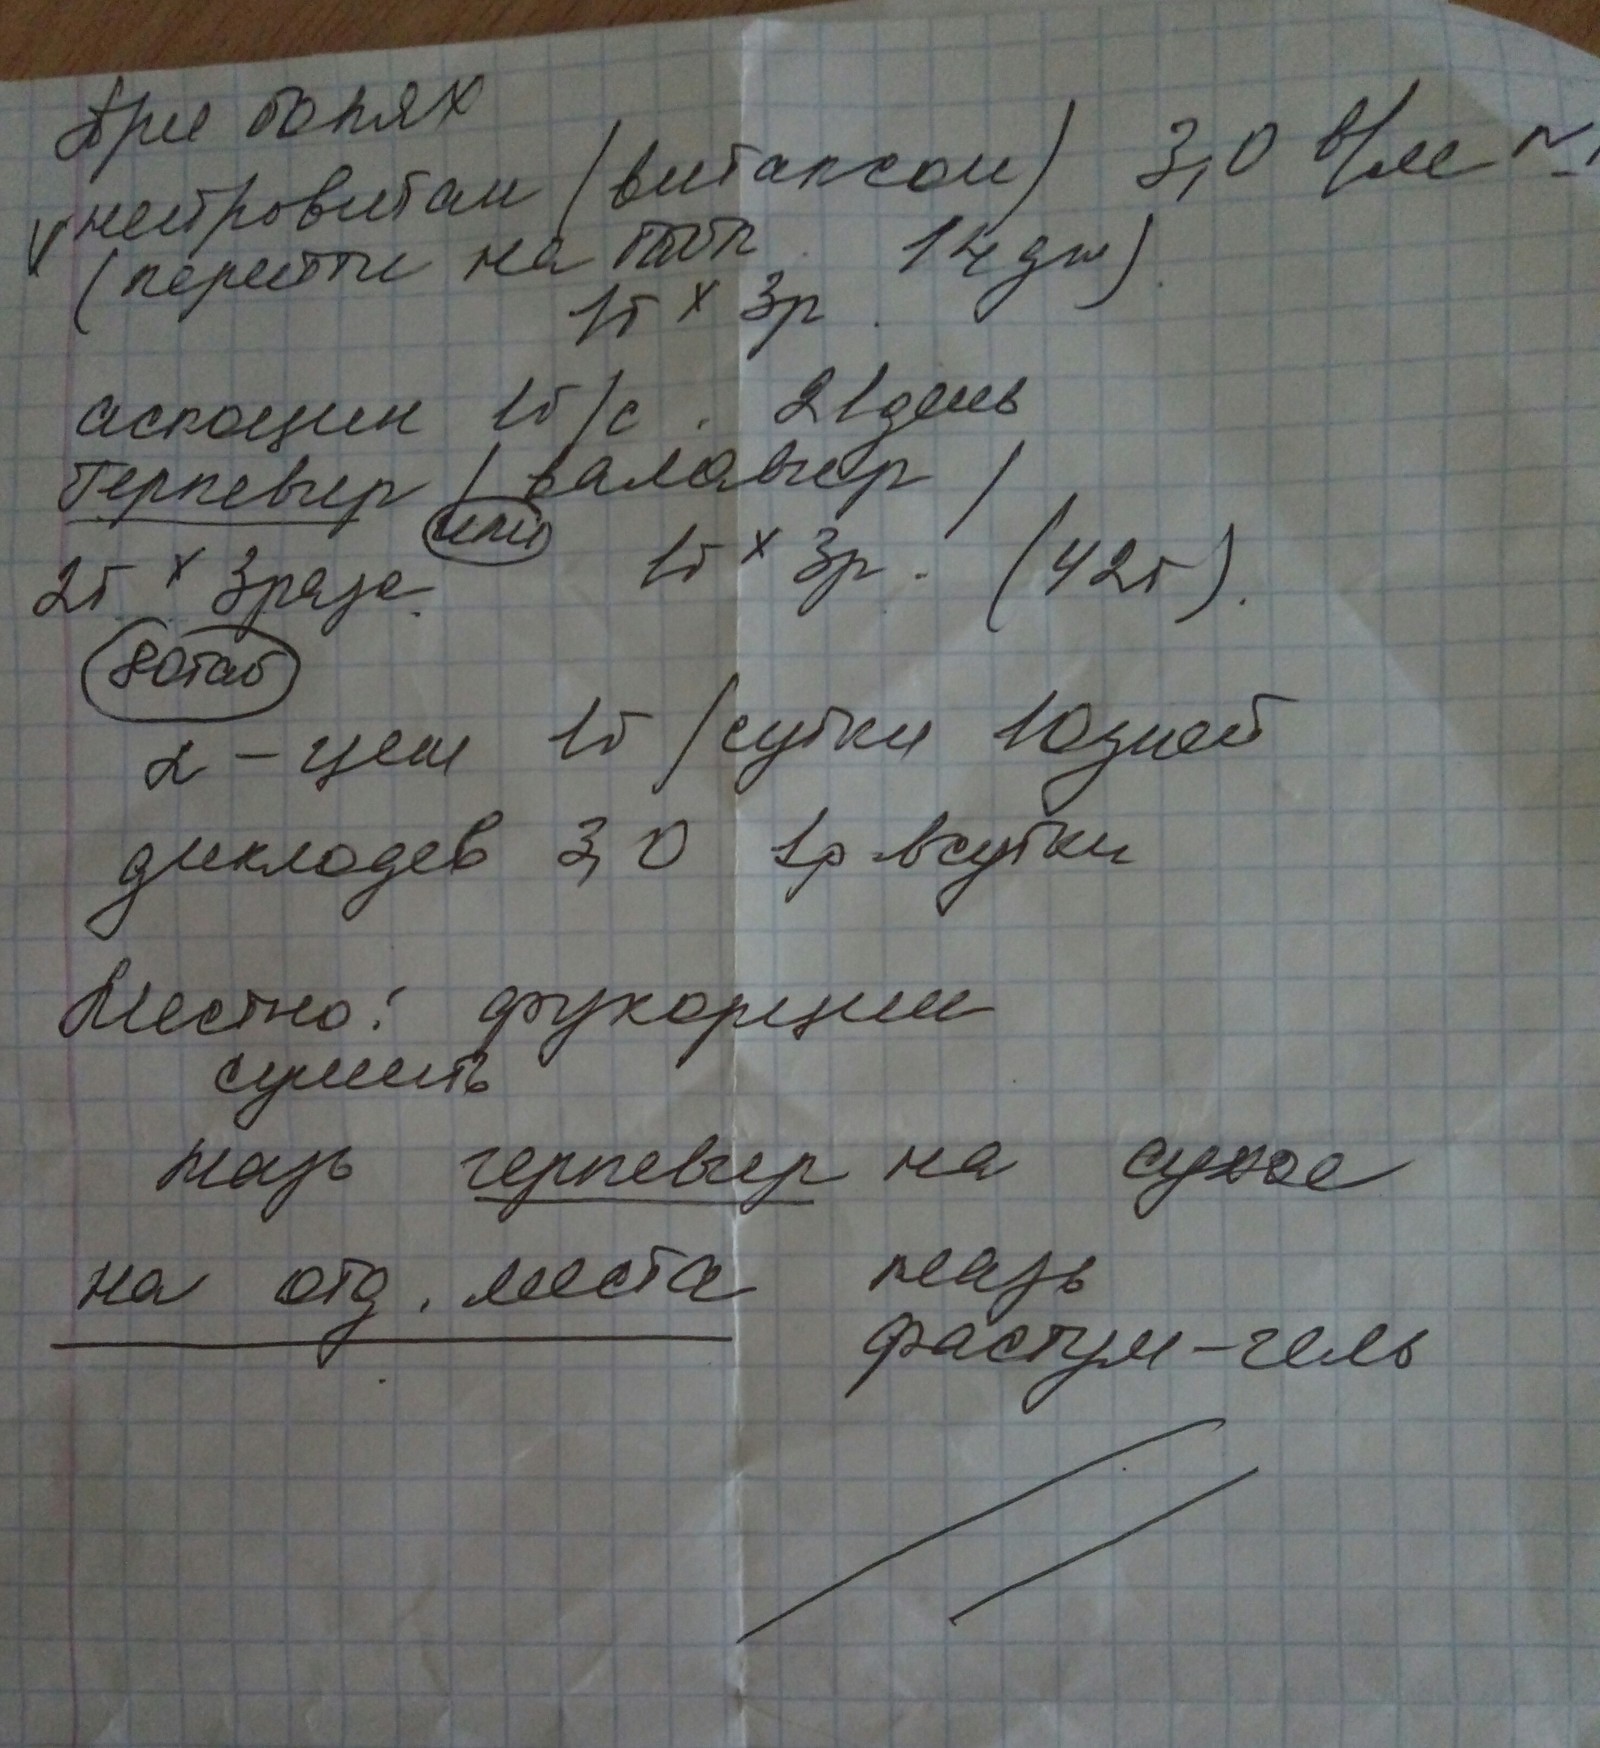 При болях
√ нейровитан (витаксон) 3,0 в/м №
(перейти на табл 14 дн).
1т х 3р.
аскоцин 1т/с. 21 день
Герпевир / валавир /
или
2т х 3 раза. 1т х 3р. (42т).
80таб
L-цет 1т/сутки 10 дней
диклодев 3,0 1р в сутки
Местно: фукорцин
сушить
мазь герпевир на сухое
на отд. места мазь
фастум-гель